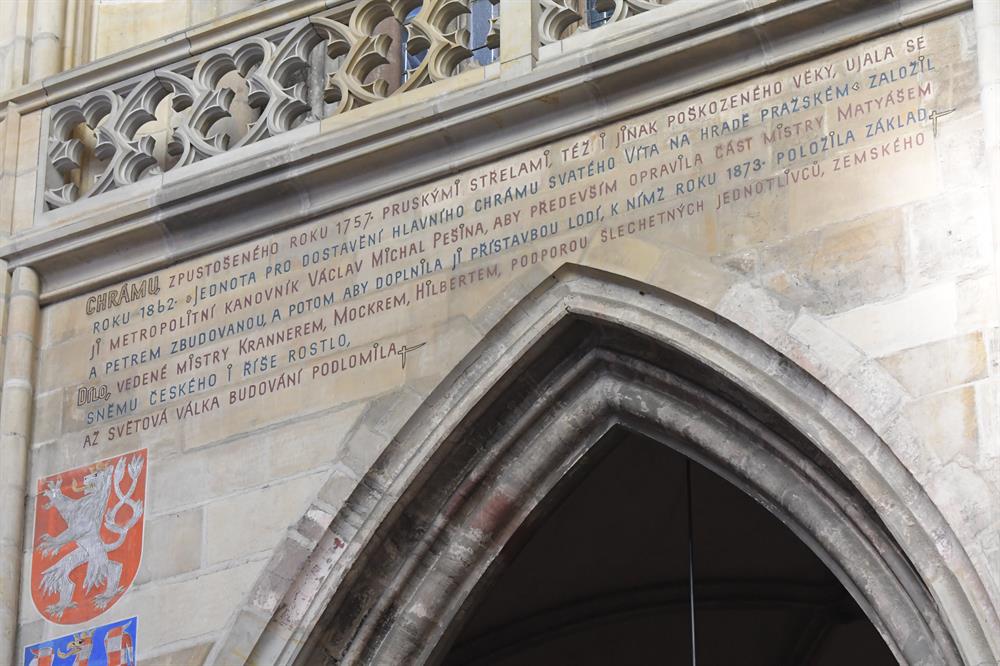 CHRÁMU, ZPUSTOŠENÉHO ROKU 1757· PRUSKÝMI STŘELAMI, TÉŽ I JINAK POŠKOZENÉHO VĚKY, UJALA SE
ROKU 1862· »JEDNOTA PRO DOSTAVĚNÍ HLAVNÍHO CHRÁMU SVATÉHO VÍTA NA HRADĚ PRAŽSKÉM« ZALOŽIL
JI METROPOLITNÍ KANOVNÍK VÁCLAV MICHAL PEŠINA, ABY PŘEDEVŠÍM OPRAVILA ČÁST MISTRY MATYÁŠEM
A PETREM ZBUDOVANOU, A POTOM ABY DOPLNILA JI PŘÍSTAVBOU LODÍ, K NÍMŽ ROKU 1873· POLOŽILA ZÁKLAD.
DÍLO, VEDENÉ MISTRY KRANNEREM, MOCKREM, HILBERTEM, PODPOROU ŠLECHETNÝCH JEDNOTLIVCŮ, ZEMSKÉHO
SNĚMU ČESKÉHO I ŘÍŠE ROSTLO,
AŽ SVĚTOVÁ VÁLKA BUDOVÁNÍ PODLOMILA.